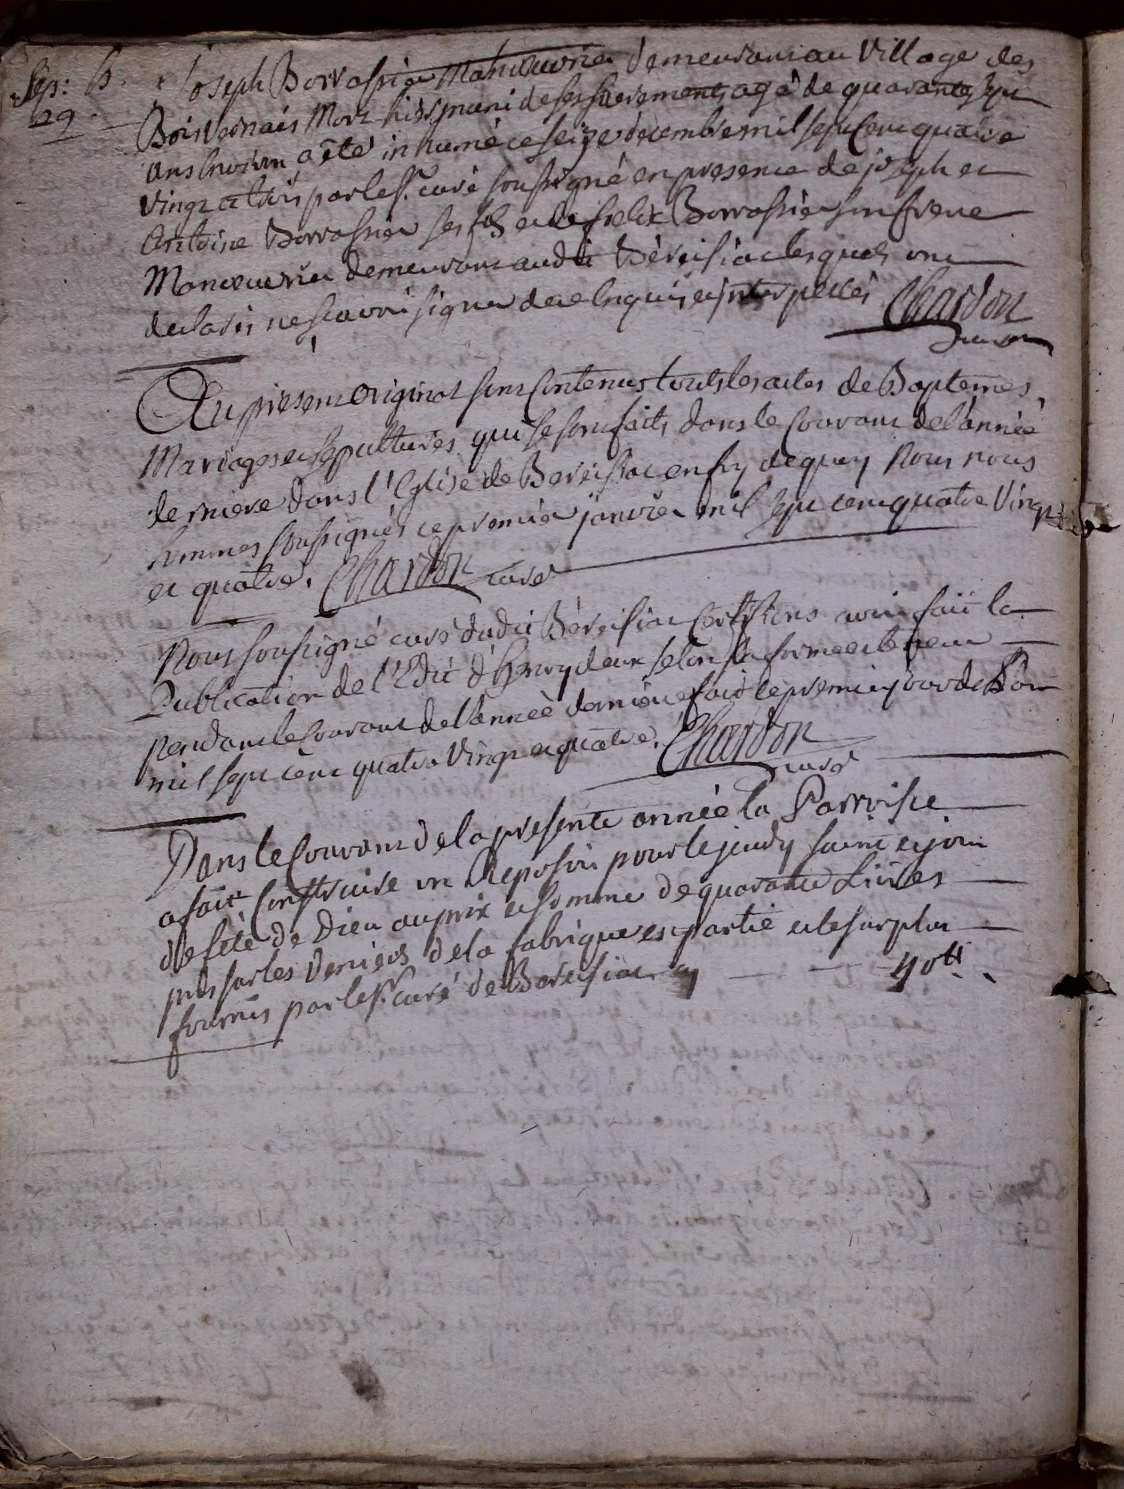 Sep: h. Joseph Borrossier Manoeuvrier demeurant au Village des
29. Bois vernais Mort hier muni de ses sacrements agé de quarante sept
ans Environ a été inhumé ce seize decembre mil sept cent quatre
Vingt et trois par le Sr. curé soussigné en presence de joseph et
Antoine Borrossier ses fils et de felix Borrossier son frere
Manoeuvrier demeurant audit Béreisiat lesquels ont
declaré ne sçavoir signer de ce Enquis et interpellés Chardon
curé
Au present original sont Contenus touts les actes de Baptemes,
Mariages et sepultures qui se sont faits dans le Courant de l'année
derniere dans l'Eglise de Bereisiat en foy de quoy Nous nous
sommes soussignés ce premier janvier mil sept cent quatre Vingt
et quatre. Chardon curé
Nous soussigné curé dudit Béreisiat Certifions avoir fait la
Publication de l'Edit d'henry deux selon sa forme et teneur
pendant le Courant de l'année derniere fait le premier jour de l'an
mil sept cent quatre Vingt et quatre. Chardon
curé
Dans le Courant de la presente année la Parroisse
a fait Construire un Reposoir pour le jeudy saint et jour
de fete de Dieu au prix et somme de quarante Livres
pris sur les Deniers de la fabrique en partie et le surplus
fournis par le Sr. curé de Bereisiat cy 40tt.